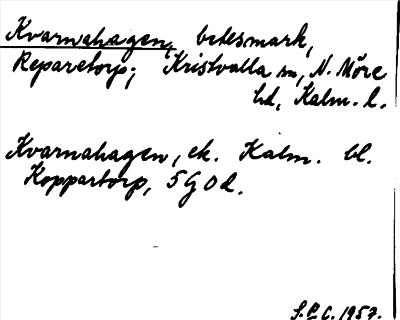 Kvarnahagen, betesmark,
Reparetorp; Kristvalla sn, N. Möre
hd, Kalm. l.
Kvarnahagen, ek. Kalm. bl.
Koppartorp, 5 G 0 d.
S.E.C. 1957.